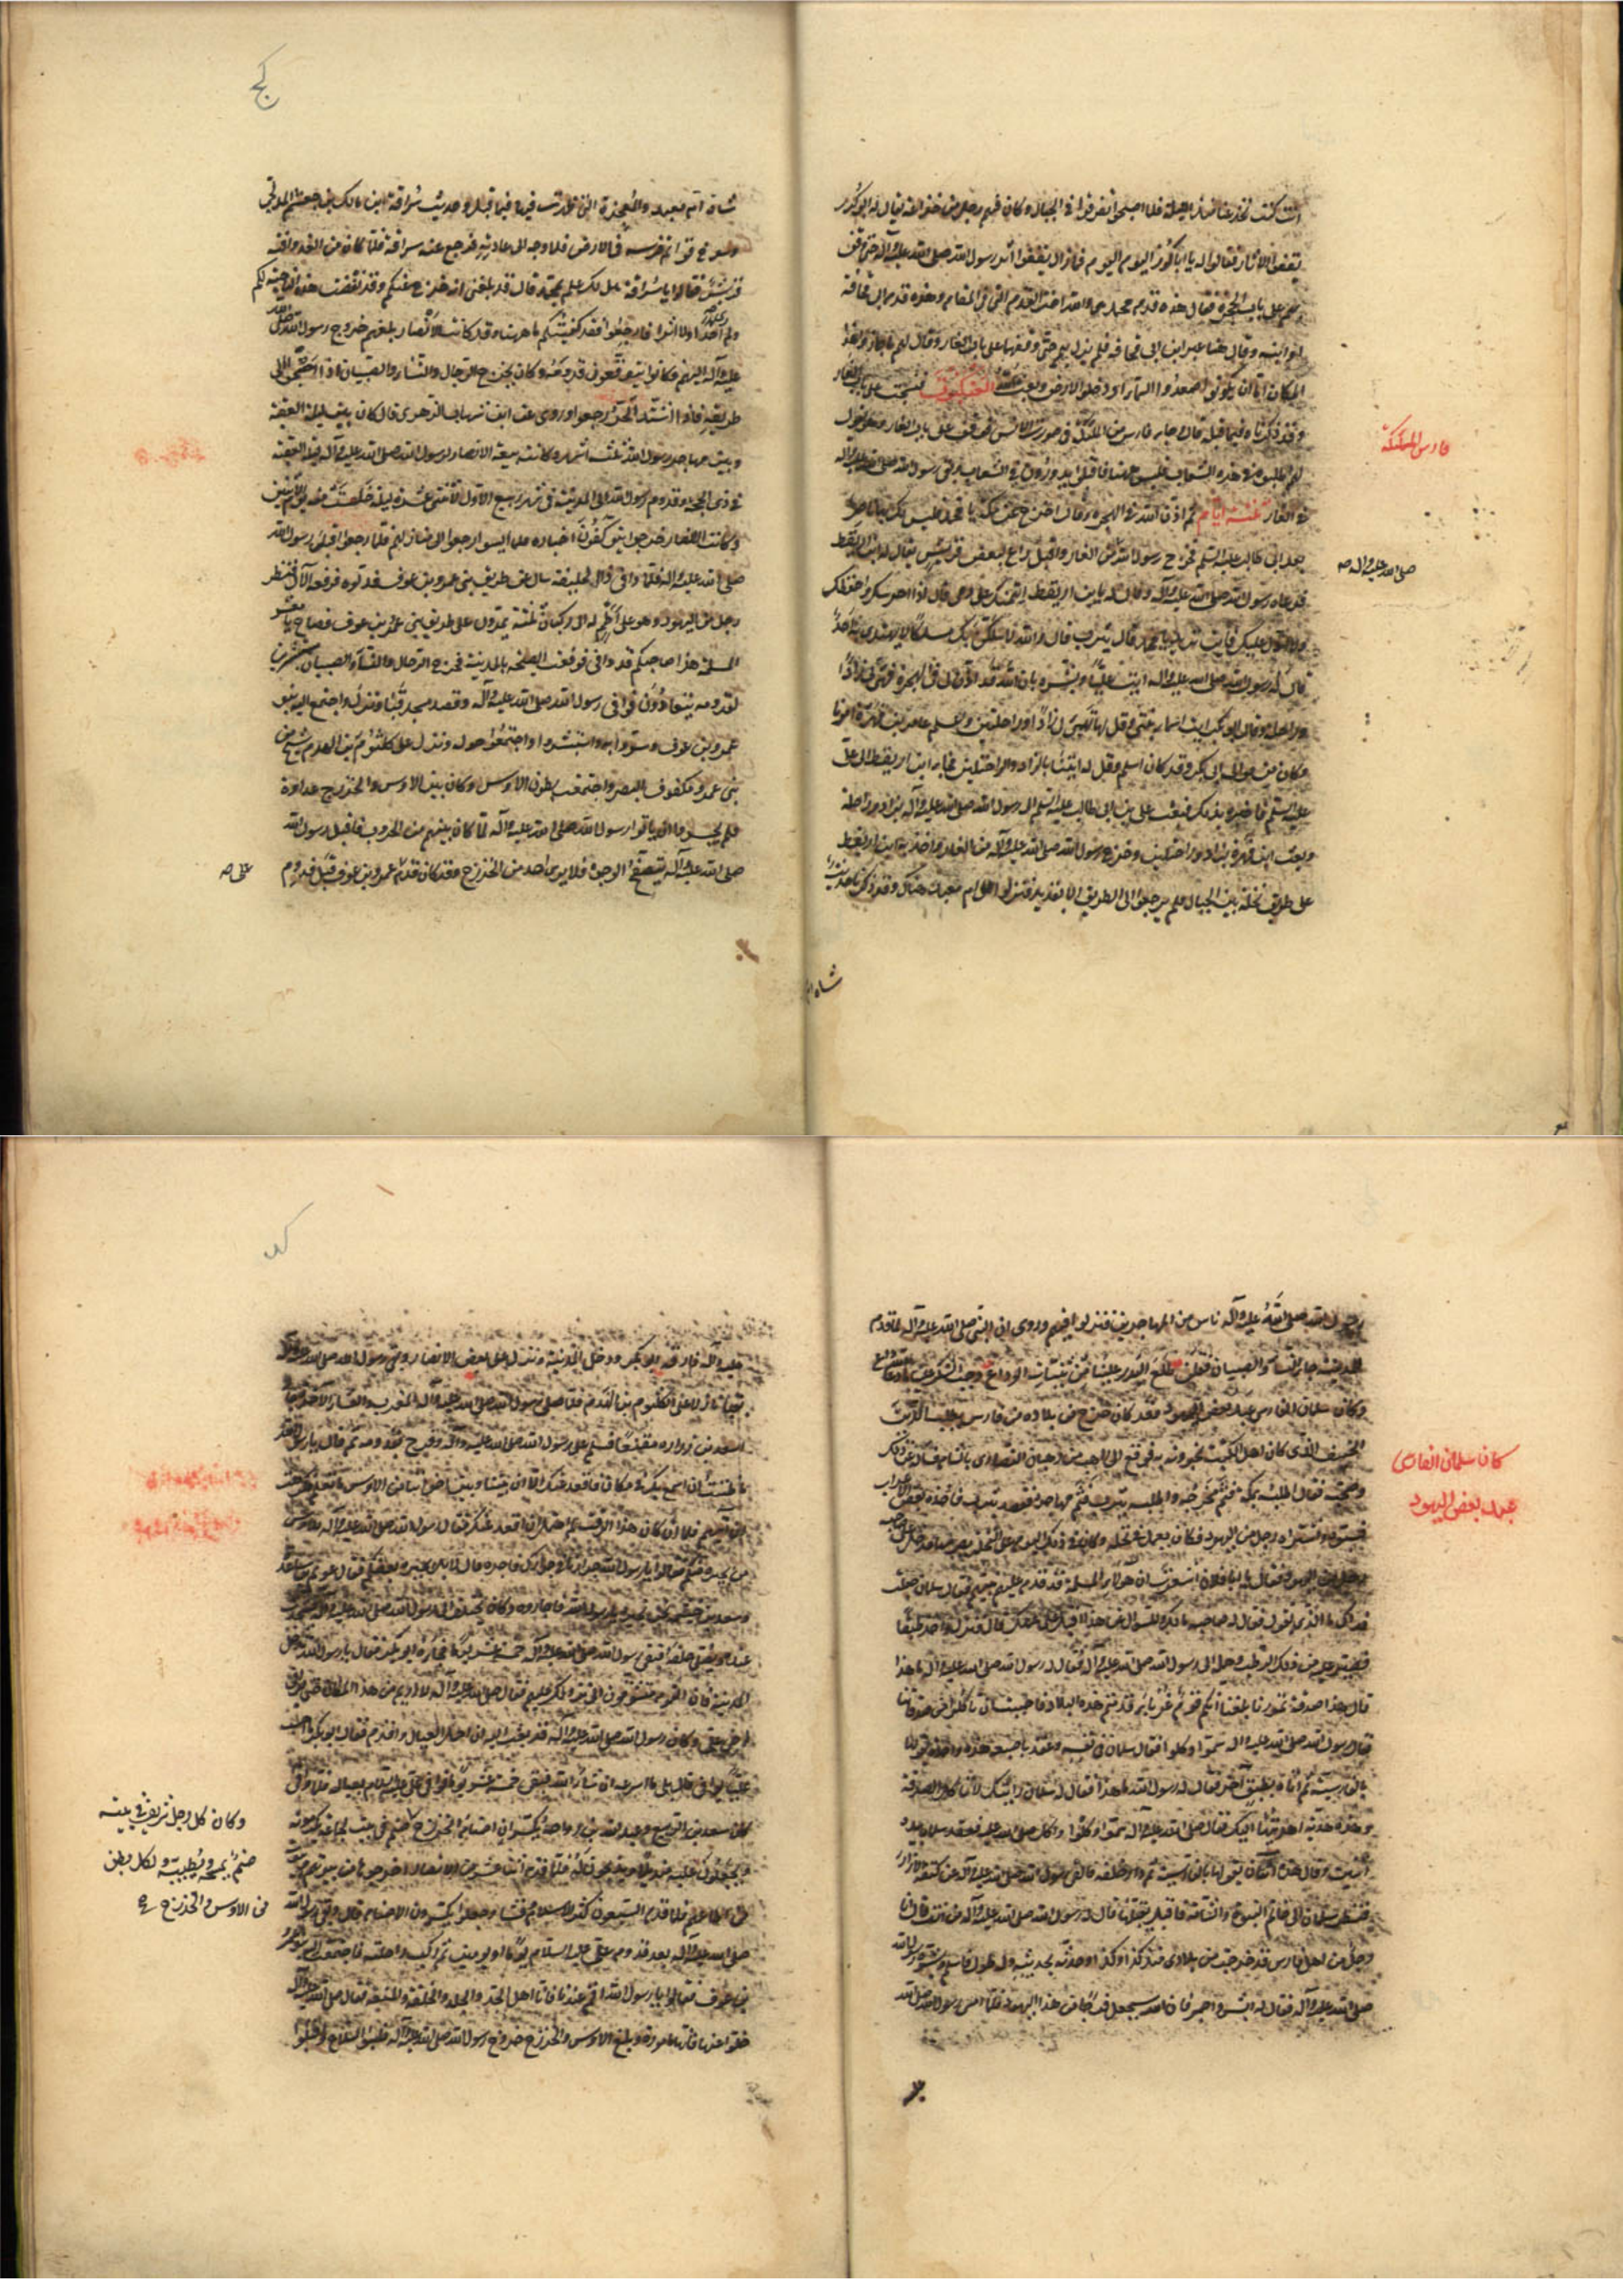 انت كنت تخدعنا منذ الليلة فلما اصبحوا تفرقوا في الجبال وكان فيهم رجل من خزاعة يقال له ابو كرز
يقفوا الاثار فقالوا له يا ابا كرز اليوم اليوم فما زال يقفوا اثر رسول الله صلى الله عليه وآله حتى وقف
بهم على باب الحجرة فقال هذه قدم محمد هي والله اخت القدم التي في المقام وهذه قدم ابي قحافة
او ابنه وقال هاهنا عبر ابن ابي قحافة فلم يزل بهم حتى وقفهم على باب الغار وقال لهم ما جازوا هذا
المكان اما ان يكونوا صعدوا السماء او دخلوا الارض وبعث الله العنكبوت فنسجت على باب الغار
وقد ذكرناه فيما قبله قال وجاء فارس من الملئكة في صورة الانس فوقف على باب الغار وهو يقول
لهم اطلبوه في هذه الشعاب فليس هاهنا فاقبلوا يدورون في الشعاب وبقي رسول الله صلى الله عليه وآله
في الغار ثلثة ايام ثم اذن الله له في الهجرة وقال اخرج عن مكة يا محمد فليس لك بها ناصر
بعد ابي طالب عليه السلم فخرج رسول الله من الغار واقبل راع لبعض قريش يقال له ابن اريقط
فدعاه رسول الله صلى الله عليه وآله وقال له يا ابن اريقط ائتمنك على دمي قال اذا احرسك واحفظك
ولا ادل عليك فاين تريد يا محمد قال يثرب قال والله لاسلكن بك مسلكا لا يهتدي فيه احد
قال له رسول الله صلى الله عليه وآله ايت عليا وبشره بان الله قد اذن لي في الهجرة فهيئ لي زادا
وراحلة وقال ابو بكر ايت اسماء بنتي وقل لها تهيئ لي زادا وراحلتين واعلم عامر بن فهيرة امرنا
وكان من موالي ابي بكر وقد كان اسلم وقل له ايتنا بالزاد والراحلتين فجاء ابن اريقط الى علي
عليه السلم فاخبره بذلك فبعث علي بن ابي طالب عليه السلم الى رسول الله صلى الله عليه وآله بزاد وراحلة
وبعث ابن فهيرة بزاد وراحلتين وخرج رسول الله صلى الله عليه وآله من الغار واخذ به ابن اريقط
على طريق نخلة بين الجبال فلم يرجعوا الى الطريق الا بقديد فنزلوا على ام معبد هناك وقد ذكرنا حديث
فارس الملئكة
صلى الله عليه وآله ص
شاة ام
شاة ام معبد والمعجزة التي ظهرت فيها فيما قبل وحديث سراقة ابن مالك بن جعشم المدلجي
ورسوخ قوائم فرسه في الارض فلا وجه الى عادته فرجع عنه سراقة فلما كان من الغد وافته
قريش فقالوا يا سراقة هل لك علم بمحمد قال قد بلغني انه خرج عنكم وقد نفضت هذه الناحية لكم
ولم ار احدا ولا اثرا فارجعوا فقد كفيتكم ما هاهنا وقد كانت الانصار بلغهم خروج رسول الله صلى الله
عليه وآله اليهم فكانوا يتوقعون قدومه وكان يخرج الرجال والنساء والصبيان اذا اصبحوا الى
طريقه فاذا اشتد الحر رجعوا وروي عن ابن شهاب الزهري قال كان بين ليلة العقبة
وبين مهاجر رسول الله ثلثة اشهر وكانت بيعة الانصار لرسول الله صلى الله عليه وآله ليلة العقبة
في ذي الحجة وقدوم رسول الله الى المدينة في شهر ربيع الاول لاثنتي عشرة ليلة خلت منه يوم الاثنين
وكانت الانصار خرجوا يتوكفون اخباره فلما ايسوا رجعوا الى منازلهم فلما رجعوا اقبل رسول الله
صلى الله عليه وآله فلما وافى ذا الحليفة سال عن طريق بني عمرو بن عوف فدلوه فرفعه الآل فنظر
رجل من اليهود وهو على اطم له الى ركبان ثلثة يمرون على طريق بني عمرو بن عوف فصاح يا معشر
المسلمة هذا صاحبكم قد وافى فوقعت الصيحة بالمدينة فخرج الرجال والنساء والصبيان مستبشرين
لقدومه يتعادون فوافى رسول الله صلى الله عليه وآله وقصد مسجد قبا ونزل واجتمع اليه بنو
عمرو بن عوف وسروا به واستبشروا واجتمعوا حوله ونزل على كلثوم بن الهدم شيخ من
بني عمرو مكفوف البصر واجتمعت بطون الاوس وكان بين الاوس والخزرج عداوة
فلم يجسروا ان ياتوا رسول الله صلى الله عليه وآله لما كان بينهم من الحروب فاقبل رسول الله
صلى الله عليه وآله يتصفح الوجوه فلا يرى احدا من الخزرج وقد كان قدم على عمرو بن عوف قبل قدوم
على ص
رسول الله صلى الله عليه وآله ناس من المهاجرين فنزلوا فيهم وروي ان النبي صلى الله عليه وآله لما قدم
المدينة جاء النساء والصبيان فقلن طلع البدر علينا من ثنيات الوداع وجب الشكر علينا ما دعا لله داع
وكان سلمان الفارسي عبدا لبعض اليهود وقد كان خرج من بلاده من فارس يطلب الدين
الحنيف الذي كان اهل الكتب يخبرونه به فوقع الى راهب من رهبان النصارى بالشام فسأله عن ذلك
وصحبه فقال اطلبه بمكة فثم مخرجه واطلبه بيثرب فثم مهاجره فقصد يثرب فاخذه بعض الاعراب
فسبوه واشتراه رجل من اليهود فكان يعمل في نخله وكان في ذلك اليوم على النخلة يصرمها فدخل على صاحبه
رجل من اليهود فقال يا ابا فلان اشعرت ان هؤلاء المسلمة قد قدم عليهم نبيهم فقال سلمان جعلت
فداك ما الذي تقول فقال له صاحبه ما لك وللسؤال عن هذا اقبل على عملك قال فنزل واخذ طبقا
فصير عليه من ذلك الرطب وحمله الى رسول الله صلى الله عليه وآله فقال له رسول الله صلى الله عليه وآله ما هذا
قال هذا صدقة تمورنا بلغنا انكم قوم غرباء قدمتم هذه البلاد فاحببت ان تاكلوا من صدقاتنا
فقال رسول الله صلى الله عليه وآله سموا وكلوا فقال سلمان في نفسه وعقد باصبعه هذه واحدة يقولها
بالفارسية ثم اتاه بطبق آخر فقال له رسول الله ما هذا فقال له سلمان رايتك لا تاكل الصدقة
وهذه هدية اهديتها اليك فقال صلى الله عليه وآله سموا وكلوا واكل صلى الله عليه فعقد سلمان بيده
اثنتين وقال هذه اثنتان يقولها بالفارسية ثم دار خلفه فالقى رسول الله صلى الله عليه وآله عن كتفه الازار
فنظر سلمان الى خاتم النبوة والشامة فاقبل يقبلها قال له رسول الله صلى الله عليه وآله من انت قال انا
رجل من اهل فارس قد خرجت من بلادي منذ كذا وكذا وحدثه بحديثه وله طول فاسلم وبشره رسول الله
صلى الله عليه وآله فقال له ابشر واصبر فان الله سيجعل لك فرجا من هذا اليهود فلما امسى رسول الله صلى الله
كان سلمان الفارسي
عبد لبعض اليهود
عليه وآله فارقه ابو بكر ودخل المدينة ونزل على بعض الانصار وبقي رسول الله صلى الله عليه وآله
بقبا نازلا على كلثوم بن الهدم فلما صلى رسول الله صلى الله عليه وآله المغرب والعشاء الآخرة جاءه
اسعد بن زرارة مقنعا فسلم على رسول الله صلى الله عليه وآله وفرح بقدومه ثم قال يا رسول الله
ما ظننت ان اسمع بك في مكان فاقعد عنك الا ان بيننا وبين اخواننا من الاوس ما تعلم فكرهت
ان آتيهم فلما ان كان هذا الوقت لم احتمل ان اقعد عنك فقال رسول الله صلى الله عليه وآله للاوس
من يجيره منكم فقالوا يا رسول الله جوارنا في جوارك فاجره قال لا بل يجيره بعضكم فقال عويم بن ساعدة
وسعد بن خيثمة نحن نجيره يا رسول الله فاجاروه وكان يختلف الى رسول الله صلى الله عليه وآله فيتحدث
عنده ويصلي خلفه فبقي رسول الله صلى الله عليه وآله خمسة عشر يوما فجاءه ابو بكر فقال يا رسول الله تدخل
المدينة فان القوم متشوقون الى نزولك عليهم فقال صلى الله عليه وآله لا اريم من هذا المكان حتى يوافي
اخي علي وكان رسول الله صلى الله عليه وآله قد بعث اليه ان احمل العيال واقدم فقال ابو بكر ما احسب
عليا يوافي قال بلى ما اسرعه ان شاء الله فبقي خمسة عشر يوما فوافى علي عليه السلام بعياله فلما وافى
كان سعد بن الربيع وعبد الله بن رواحة يكسران اصنام الخزرج
من الاوس والخزرج
صلى الله عليه وآله بعد قدوم علي عليه السلام يوما او يومين ثم ركب راحلته فاجتمعت اليه بنو عمرو
بن عوف فقالوا يا رسول الله اقم عندنا فانا اهل الجد والجلد والحلقة والمنعة فقال صلى الله عليه وآله
خلوا عنها فانها مامورة وبلغ الاوس والخزرج خروج رسول الله صلى الله عليه وآله فلبسوا السلاح واقبلوا
وكان كل رجل شريف في بيته
صنم يمسحه ويطيبه ولكل بطن